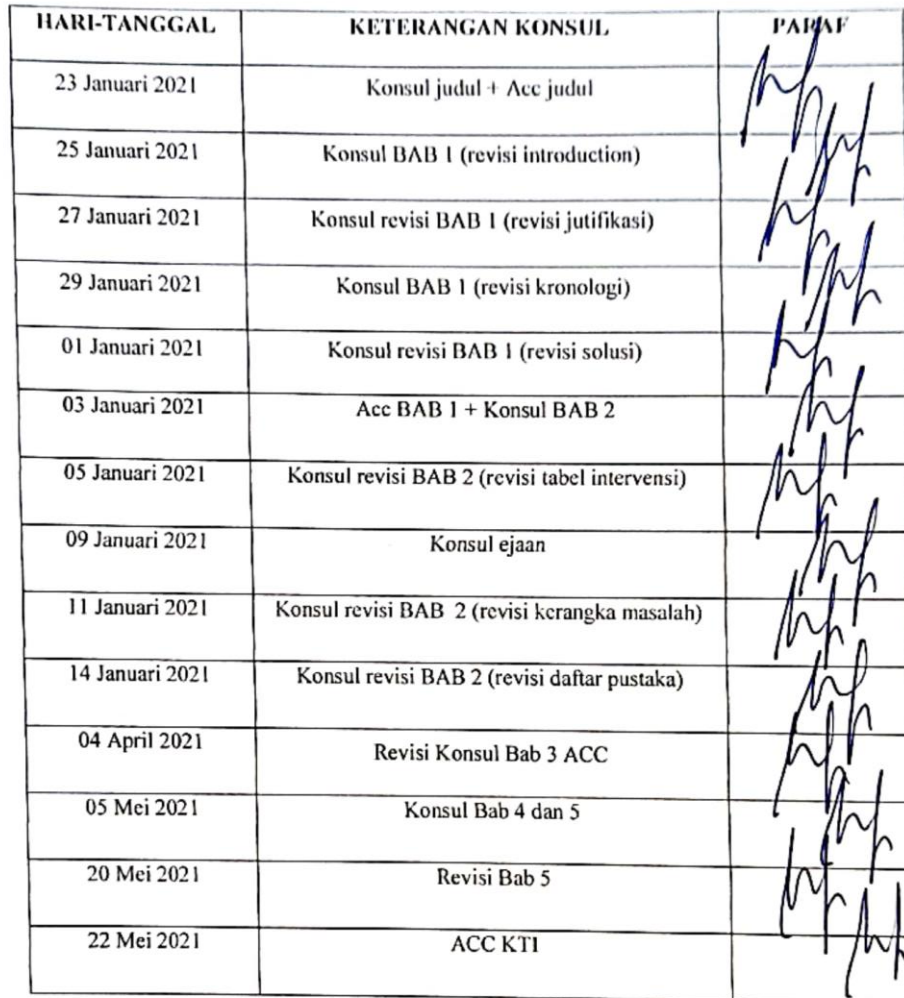 HARI-TANGGAL KETERANGAN KONSUL PARAF
23 Januari 2021 Konsul judul + Acc judul
25 Januari 2021 Konsul BAB 1 (revisi introduction)
27 Januari 2021 Konsul revisi BAB 1 (revisi jutifikasi)
29 Januari 2021 Konsul BAB 1 (revisi kronologi)
01 Januari 2021 Konsul revisi BAB 1 (revisi solusi)
03 Januari 2021 Acc BAB 1 + Konsul BAB 2
05 Januari 2021 Konsul revisi BAB 2 (revisi tabel intervensi)
09 Januari 2021 Konsul ejaan
11 Januari 2021 Konsul revisi BAB 2 (revisi kerangka masalah)
14 Januari 2021 Konsul revisi BAB 2 (revisi daftar pustaka)
04 April 2021 Revisi Konsul Bab 3 ACC
05 Mei 2021 Konsul Bab 4 dan 5
20 Mei 2021 Revisi Bab 5
22 Mei 2021 ACC KTI